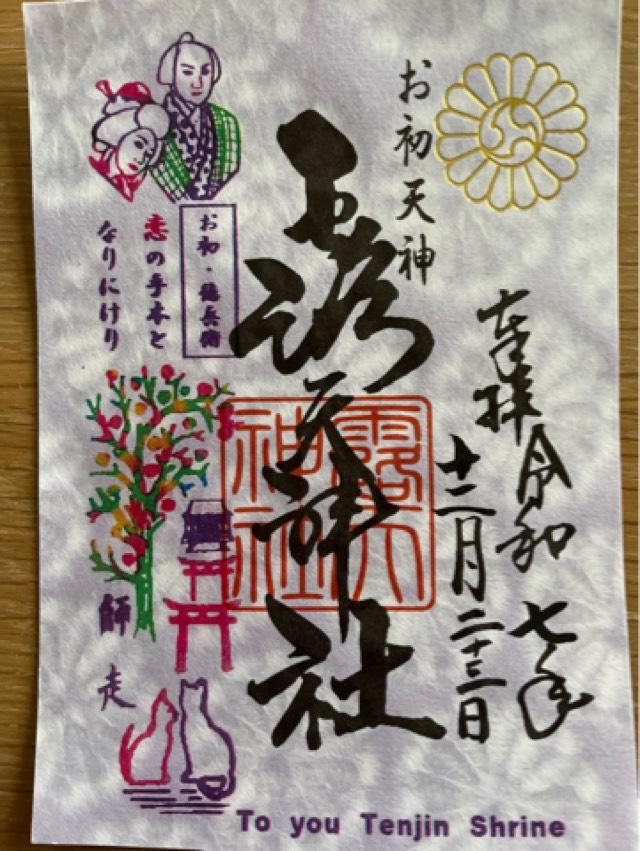 お初天神
奉拝
令和七年
十二月二十三日
露天神社
露天神社
お初・徳兵衛
恋の手本と
なりにけり
師走
To you Tenjin Shrine